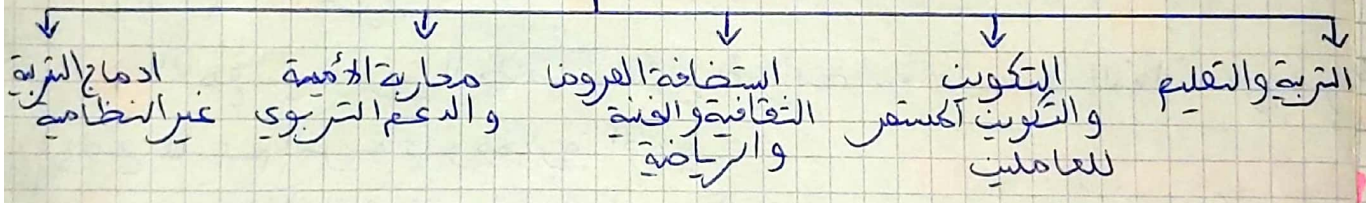 التربية والتعليم
التكوين
والتكوين المستمر
للعاملين
استضافة العروض
الثقافية والفنية
والرياضة
محاربة الأمية
والدعم التربوي
ادماج التربية
غير النظامية